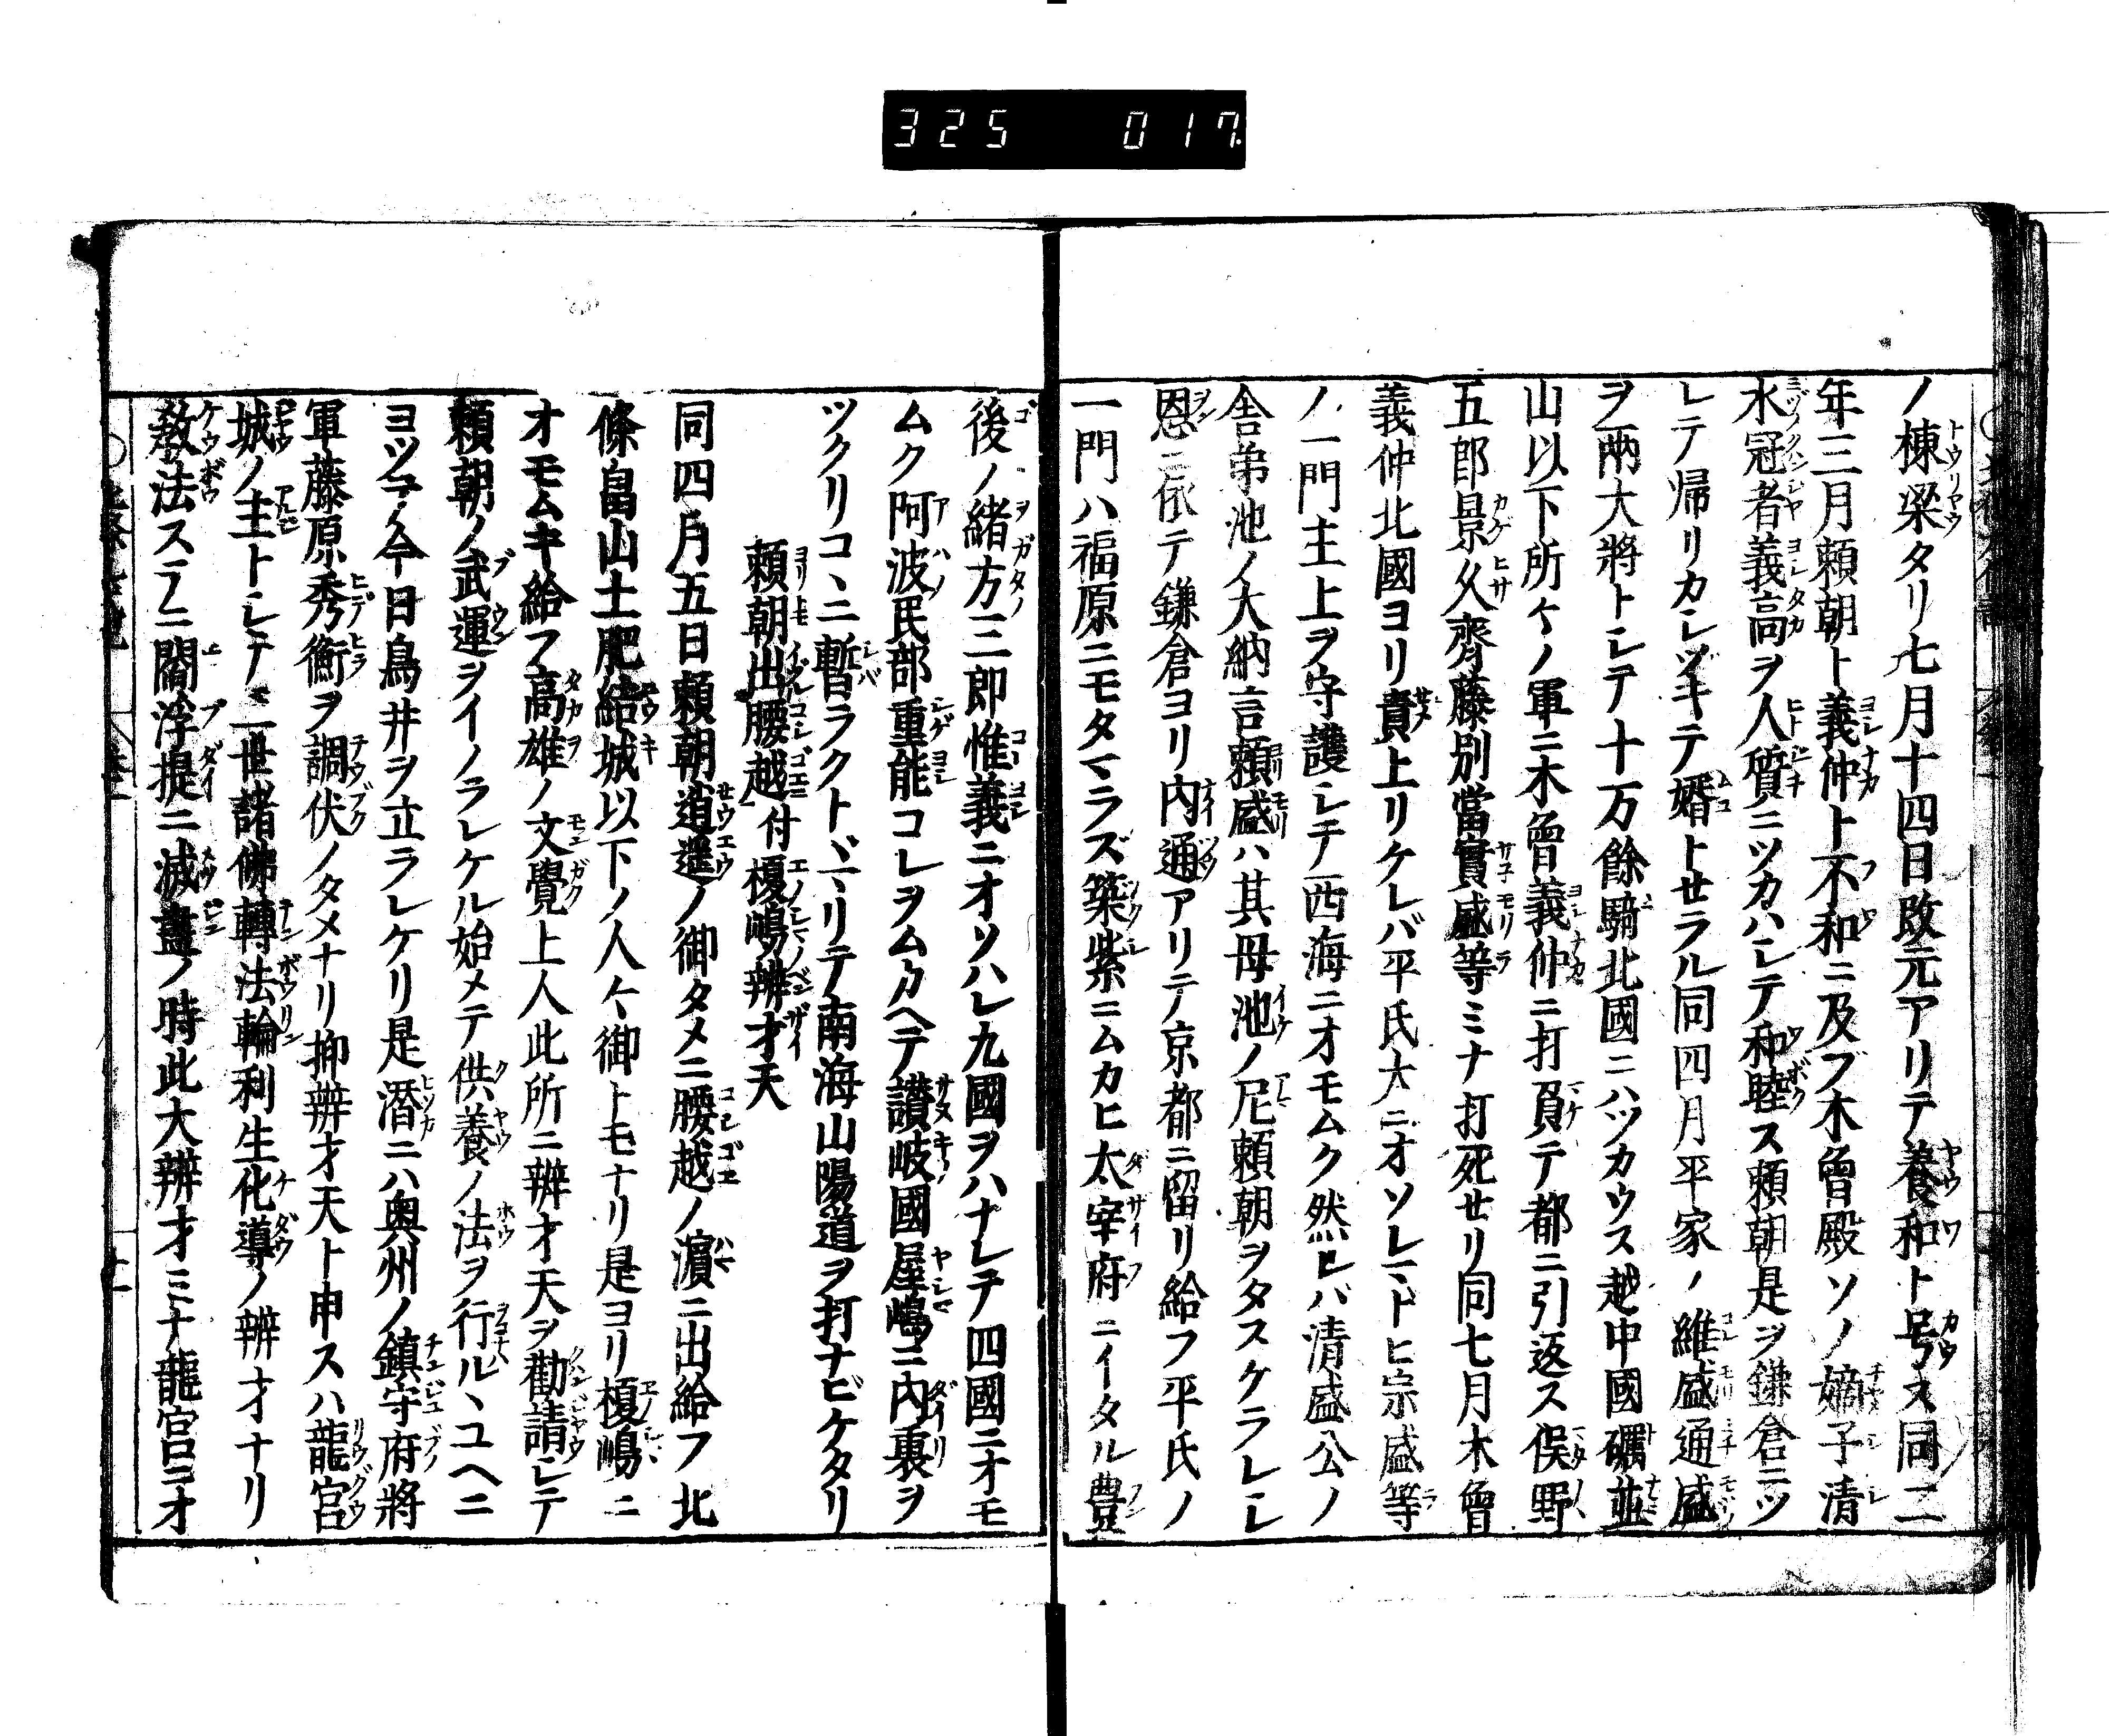 325 017
ノ棟梁タリ七月十四日改元アリテ養和ト号ス同二
年三月頼朝ト義仲ト不和ニ及ブ木曾殿ソノ嫡子清
水冠者義高ヲ人質ニツカハシテ和睦ス頼朝是ヲ鎌倉ニツ
レテ帰リカシヅキテ婿トセラル同四月平家ノ維盛通盛
ヲ両大將トシテ十万餘騎北國ニハツカウス越中國礪並
山以下所々ノ軍ニ木曾義仲ニ打負テ都ニ引返ス俣野
五郎景久齊藤別當實盛等ミナ打死セリ同七月木曾
義仲北國ヨリ責上リケレバ平氏大ニオソレマドヒ宗盛等
ノ一門主上ヲ守護シテ西海ニオモムク然レバ清盛公ノ
舎弟池ノ大納言頼盛ハ其母池ノ尼頼朝ヲタスケラレシ
恩ニ依テ鎌倉ヨリ内通アリテ京都ニ留リ給フ平氏ノ
一門ハ福原ニモタマラズ築紫ニムカヒ太宰府ニイタル豊
後ノ緒方三郎惟義ニオソハレ九國ヲハナレテ四國ニオモ
ムク阿波民部重能コレヲムカヘテ讃岐國屋嶋ニ内裏ヲ
ツクリコヽニ暫ラクトヾマリテ南海山陽道ヲ打ナビケタリ
頼朝出腰越付榎嶋辨才天
同四月五日頼朝逍遥ノ御タメニ腰越ノ濵ニ出給フ北
條畠山土肥結城以下ノ人々御トモナリ是ヨリ榎嶋ニ
オモムキ給フ高雄ノ文覺上人此所ニ辨才天ヲ勸請シテ
頼朝ノ武運ヲイノラレケル始メテ供養ノ法ヲ行ルヽユヘニ
ヨツテ今日鳥井ヲ立ラレケリ是潜ニハ奥州ノ鎮守府將
軍藤原秀衡ヲ調伏ノタメナリ抑辨才天ト申スハ龍宮
城ノ主トシテ三世諸佛轉法輪利生化導ノ辨才ナリ
教法スデニ閻浮提ニ滅盡ノ時此大辨才ミナ龍宮ニオ